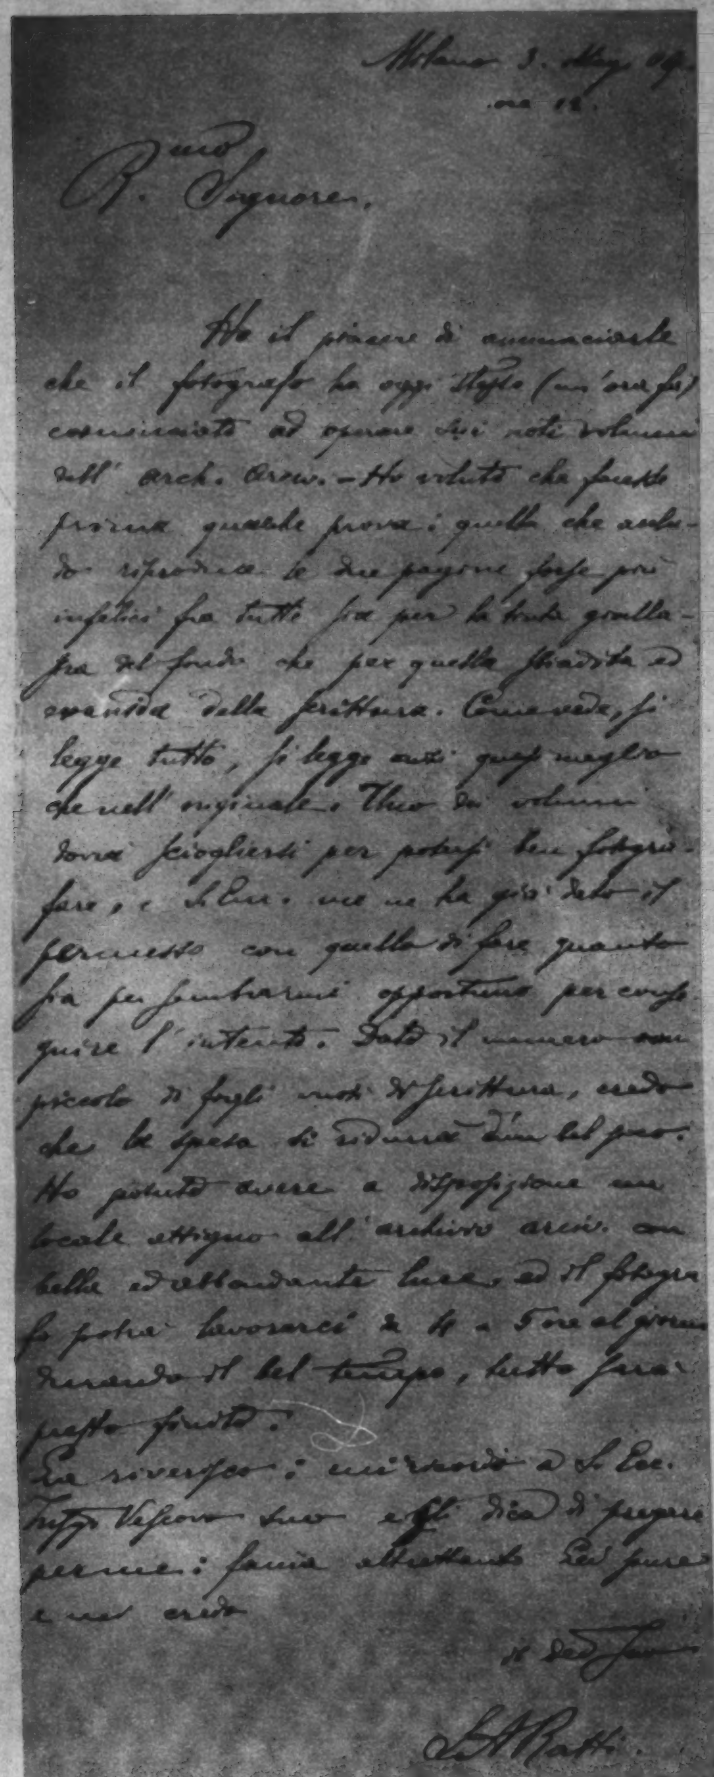 Milano 3. Mag. 09.
ore 12.
R.mo Signore.
Ho il piacere di annunciarle
che il fotografo ha oggi stesso (un'ora fa)
cominciato ad operare sui noti volumi
dell' arch. arciv. - Ho voluto che facesse
prima qualche prova: quella che
riproduce le due pagine forse più
infelici fra tutte sia per la tinta gialla-
stra del fondo che per quella sbiadita ed
evanida della scrittura. Come vede, si
legge tutto, si legge anzi quasi meglio
che nell' originale. Uno dei volumi
dovrà sciogliersi per potersi ben fotogra-
fare, e S. Em. me ne ha già dato il
permesso con quello di fare quanto
sia per sembrarmi opportuno per conse-
guire l' intento. Dato il numero non
piccolo di fogli vuoti di scrittura, credo
che la spesa si ridurrà d'un bel poco.
Ho potuto avere a disposizione un
locale attiguo all' archivio arciv. con
bella ed abbondante luce, ed il fotogra
fo potrà lavorarci da 4 a 5 ore al giorno
durando il bel tempo, tutto sarà
presto finito.
La riverisco: mi ricordi a S. Ecc.
Vescovo suo e gli dica di pregare
per me: faccia altrettanto Lei pure
e mi creda
il dev. suo
S. A. Ratti.